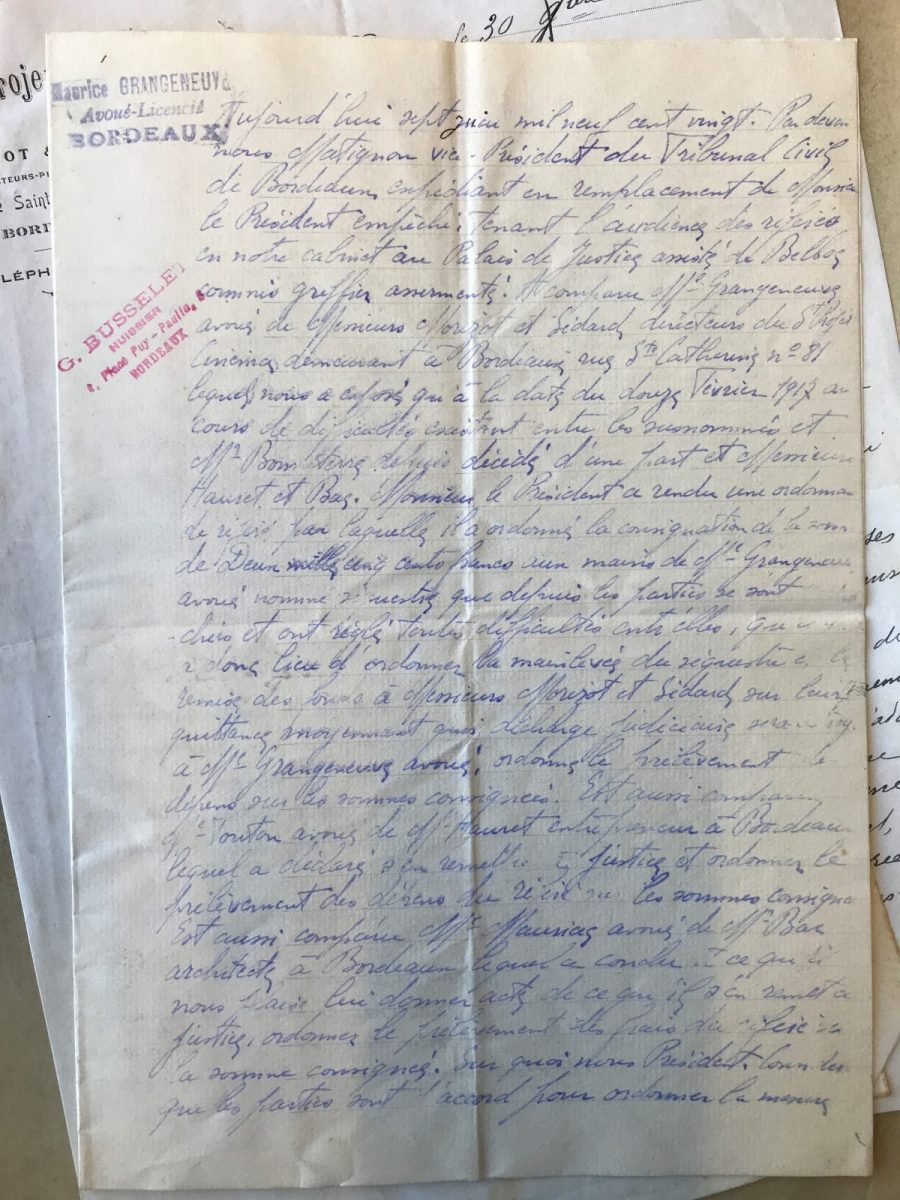 le 30
Maurice GRANGENEUVE
Avoué-Licencié
BORDEAUX
G. BUSSELET
HUISSIER
Place Puy-Paulin,
BORDEAUX
OT &
TEURS-P
Saint
BORD
ÉLÉPH
Aujourd'hui sept juin mil neuf cent vingt. Par devan
nous Matignon vice-Président du Tribunal Civil
de Bordeaux expédiant en remplacement de Monsieu
le Président empêché, tenant l'audience des référés
en notre cabinet au Palais de Justice assisté de
commis greffier assermenté. A comparu Me Grangeneuve
avoué de Messieurs Morizot et Sédard directeurs du St Projet
Cinéma demeurant à Bordeaux rue Ste Catherine no 81
lequel nous a exposé qu'à la date du douze Février 1917 au
cours de difficultés existant entre les susnommés et
depuis décédé d'une part et Messieurs
Hauret et Bac. Monsieur le Président a rendu une ordonnan
de référé par laquelle il a ordonné la consignation de la som
de Deux mille cinq cents francs aux mains de Me Grangeneuve
avoué nommé séquestre que depuis les parties se sont
et ont réglé toutes difficultés entr'elles, que
donc lieu d'ordonner la mainlevée du séquestre
remise des fonds à Messieurs Morizot et Sédard sur leur
quittance moyennant quoi décharge judiciaire sera
à Me Grangeneuve avoué, ordonner le prélèvement de
dépens sur les sommes consignées. Est aussi comparu
Me Touton avoué de M. Hauret entrepreneur à Bordeaux
lequel a déclaré s'en remettre à justice et ordonner le
prélèvement des dépens du référé sur les sommes consigné
Est aussi comparu Me Mauriac avoué de Mr Bac
architecte à Bordeaux lequel a conclu à ce qu'il
nous plaise lui donner acte de ce que il s'en remet à
justice, ordonner le prélèvement des frais du référé
la somme consignée. Sur quoi nous Président.
que les parties sont d'accord pour ordonner la mesure